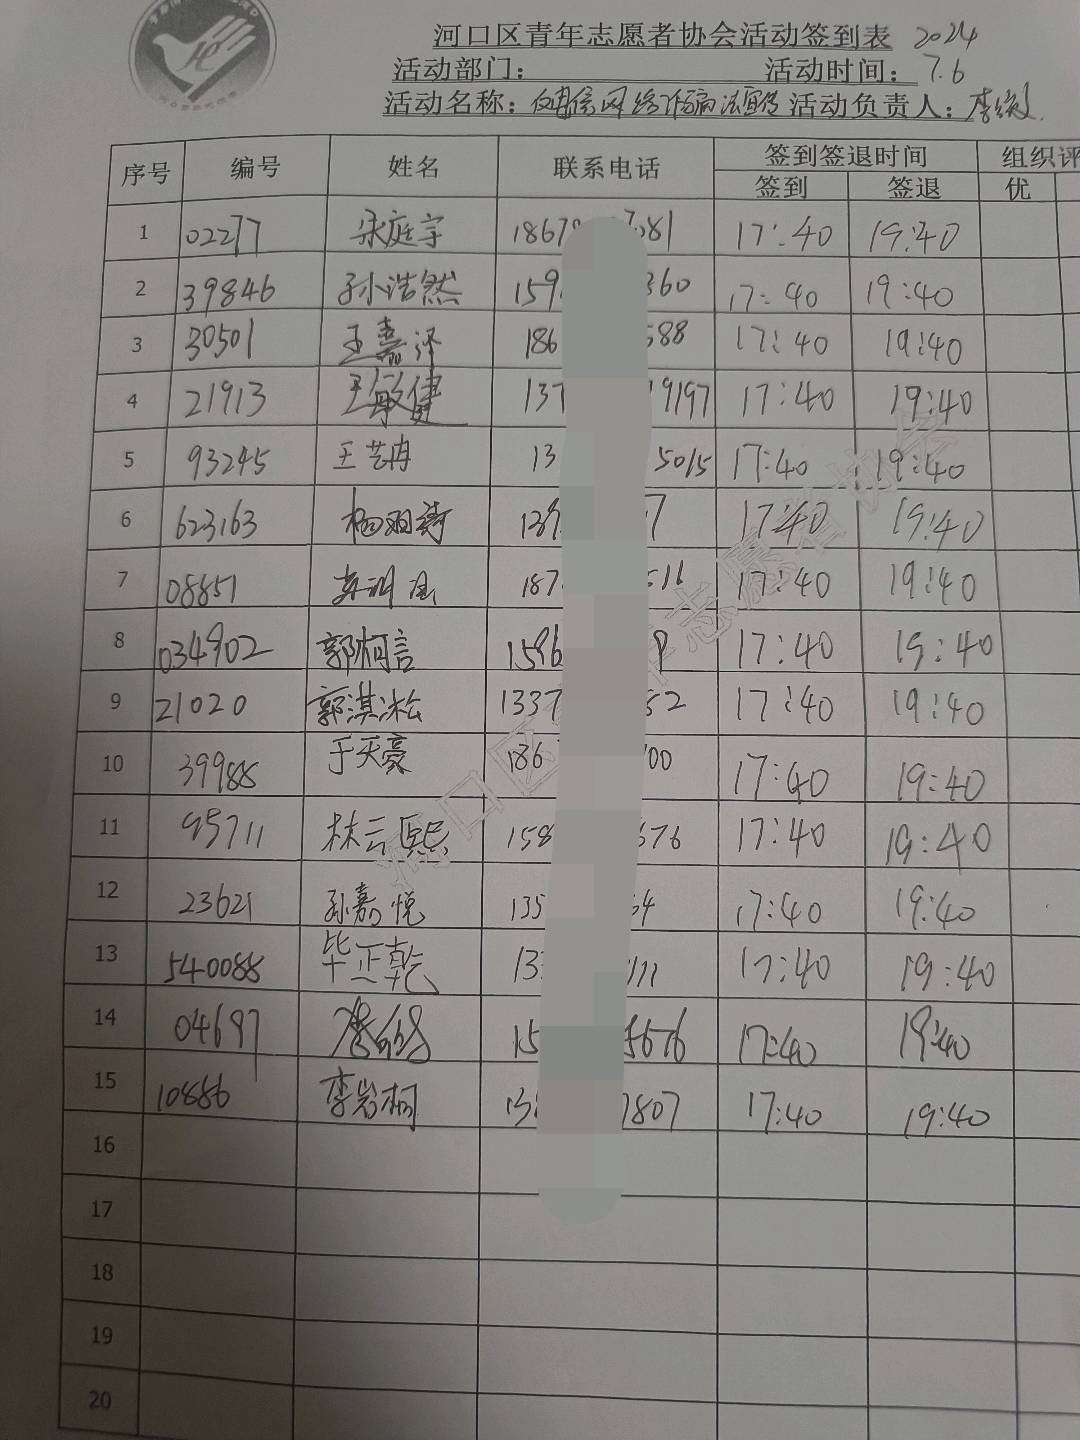 河口区青年志愿者协会活动签到表 2024
活动部门： 活动时间：7.6
活动名称： 网络 活动负责人：李
序号 编号 姓名 联系电话 签到签退时间 组织评
签到 签退 优
1 02277 梁庭宇 1867 681 17:40 19:40
2 39846 孙浩然 159 360 17:40 19:40
3 30501 王嘉译 186 588 17:40 19:40
4 21913 王敏健 137 9197 17:40 19:40
5 93245 王艺冉 13 5015 17:40 19:40
6 623163 杨 139 7 17:40 19:40
7 08851 187 511 17:40 19:40
8 034902 郭柯言 1596 9 17:40 19:40
9 21020 郭淇淞 1337 52 17:40 19:40
10 39988 于天豪 186 00 17:40 19:40
11 95711 林云熙 158 676 17:40 19:40
12 23621 孙嘉悦 135 64 17:40 19:40
13 540088 毕正乾 13 111 17:40 19:40
14 04697 15 5676 17:40 19:40
15 10886 李岩桐 13 7807 17:40 19:40
16
17
18
19
20